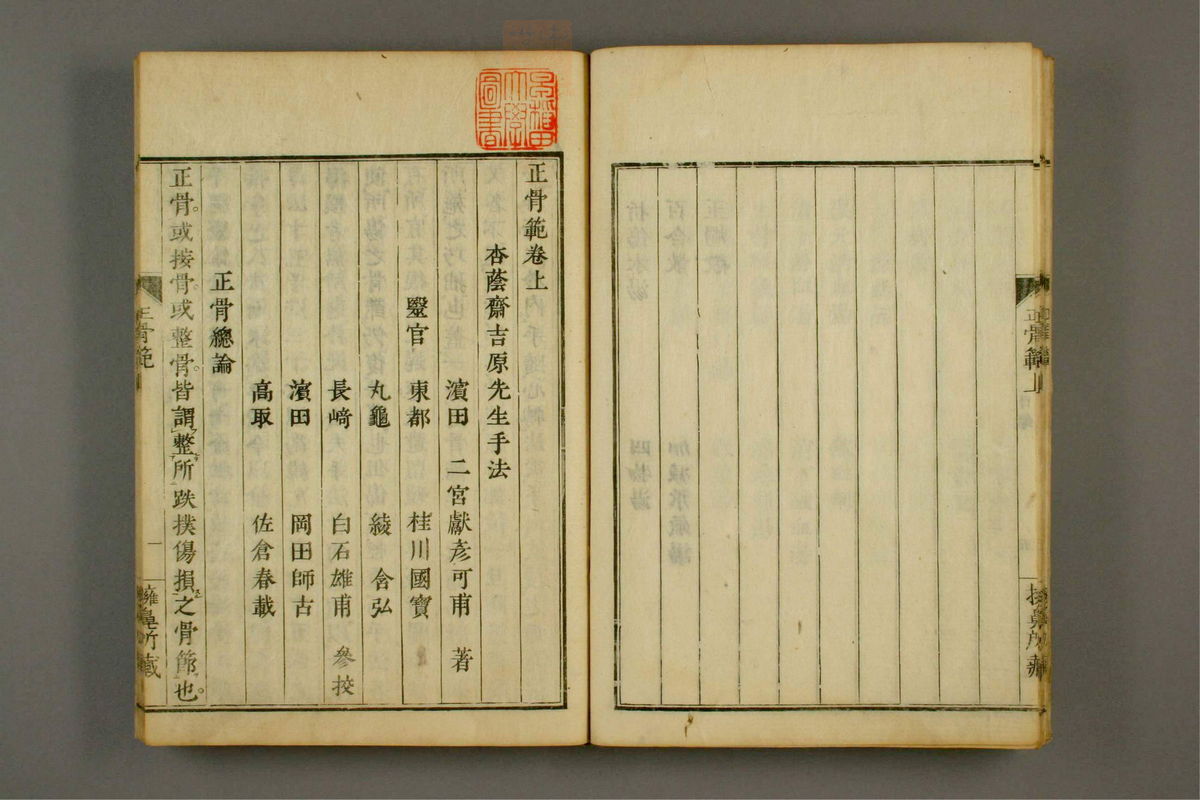 正骨範上
早稲田大学図書
正骨範卷上
杏蔭齋吉原先生手法
濱田 二宮獻彦可甫 著
毉官 東都 桂川國寶
丸龜 綾 舎弘
長﨑 白石雄甫 參挍
濱田 岡田師古
高取 佐倉春載
正骨總論
正骨。或接骨。或整骨。皆謂整所跌撲傷損之骨節也。
正骨範上
一